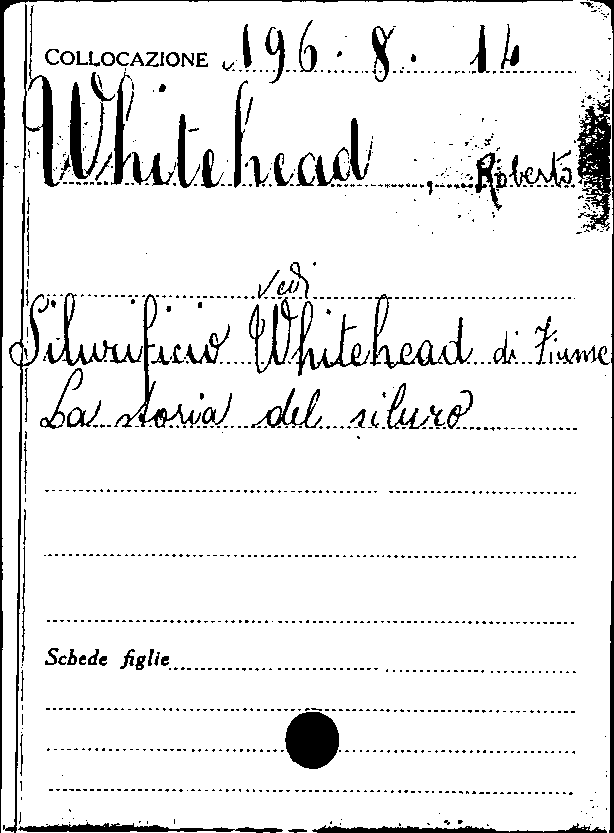 COLLOCAZIONE 196. 8. 14
Whitehead, Roberto
vedi
Silurificio Whitehead di Fiume
La storia del siluro
Schede figlie